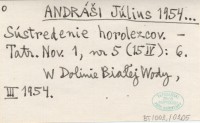 ANDRÁŠI Július 1954...
Sústredenie horolezcov. —
Tatr. Nov. 1, nr 5 (15 IV): 6.
W Dolinie Białej Wody,
III 1954.